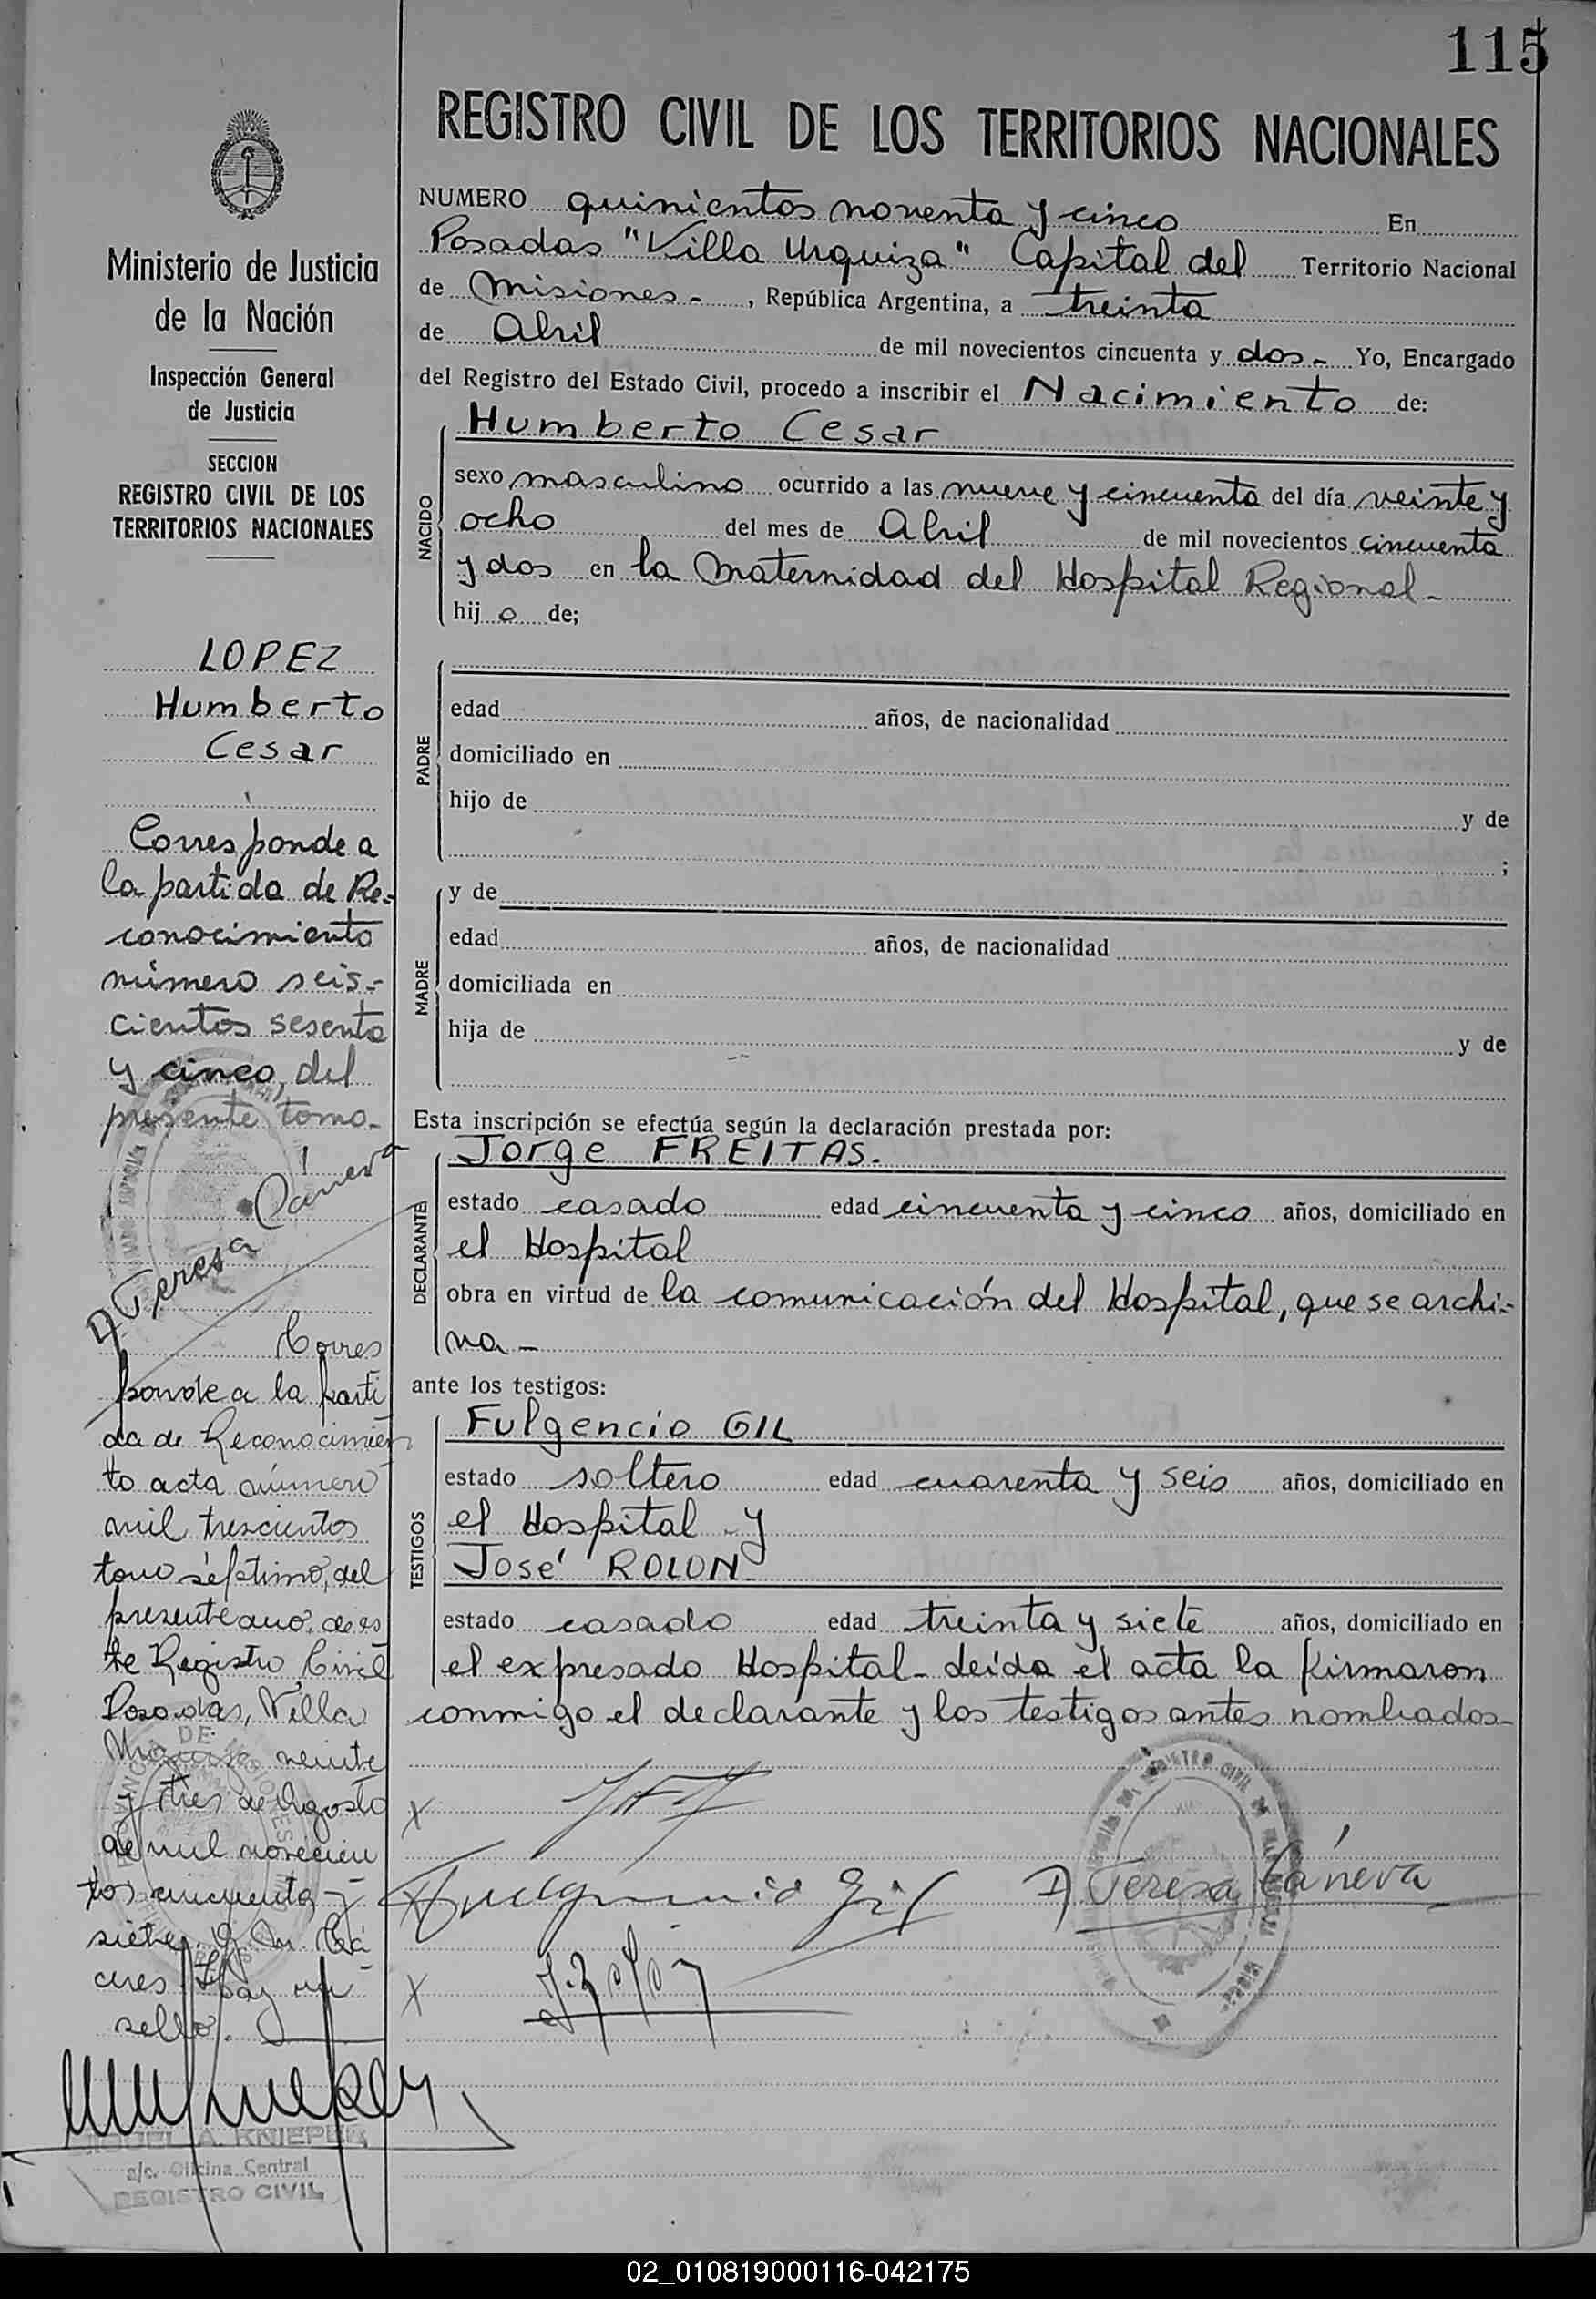 115
REGISTRO CIVIL DE LOS TERRITORIOS NACIONALES
Ministerio de Justicia
de la Nación
Inspección General
de Justicia
SECCION
REGISTRO CIVIL DE LOS
TERRITORIOS NACIONALES
LOPEZ
Humberto
Cesar
Corresponde a
la partida de Re-
conocimiento
número seis-
cientos sesenta
y cinco, del
presente tomo.
A Teresa Cáneva
Corres
ponde a la parti
da de Reconocimien
to acta número
mil trescientos
tomo séptimo, del
presente año, de es
te Registro Civil
Posadas, Villa
Urquiza veinte
y tres de Agosto
de mil novecien
tos cincuenta y
siete.
Hay un
sello.
MIGUEL A. KNIEPER
a/c. Oficina Central
REGISTRO CIVIL
NUMERO quinientos noventa y cinco En
Posadas "Villa Urquiza" Capital del Territorio Nacional
de Misiones- , República Argentina, a treinta
de Abril de mil novecientos cincuenta y dos- Yo, Encargado
del Registro del Estado Civil, procedo a inscribir el Nacimiento de:
NACIDO
Humberto Cesar
sexo masculino ocurrido a las nueve y cincuenta del día veinte y
ocho del mes de Abril de mil novecientos cincuenta
y dos en la Maternidad del Hospital Regional-
hijo de;
PADRE
edad años, de nacionalidad
domiciliado en
hijo de y de
;
MADRE
y de
edad años, de nacionalidad
domiciliada en
hija de y de
Esta inscripción se efectúa según la declaración prestada por:
DECLARANTE
Jorge FREITAS.
estado casado edad cincuenta y cinco años, domiciliado en
el Hospital
obra en virtud de la comunicación del Hospital, que se archi-
va-
ante los testigos:
TESTIGOS
Fulgencio GIL
estado soltero edad cuarenta y seis años, domiciliado en
el Hospital y
José ROLON.
estado casado edad treinta y siete años, domiciliado en
el expresado Hospital- Leída el acta la firmaron
conmigo el declarante y los testigos antes nombrados-
X
Fulgencio Gil A Teresa Cáneva
X J. Rolon
02_010819000116-042175